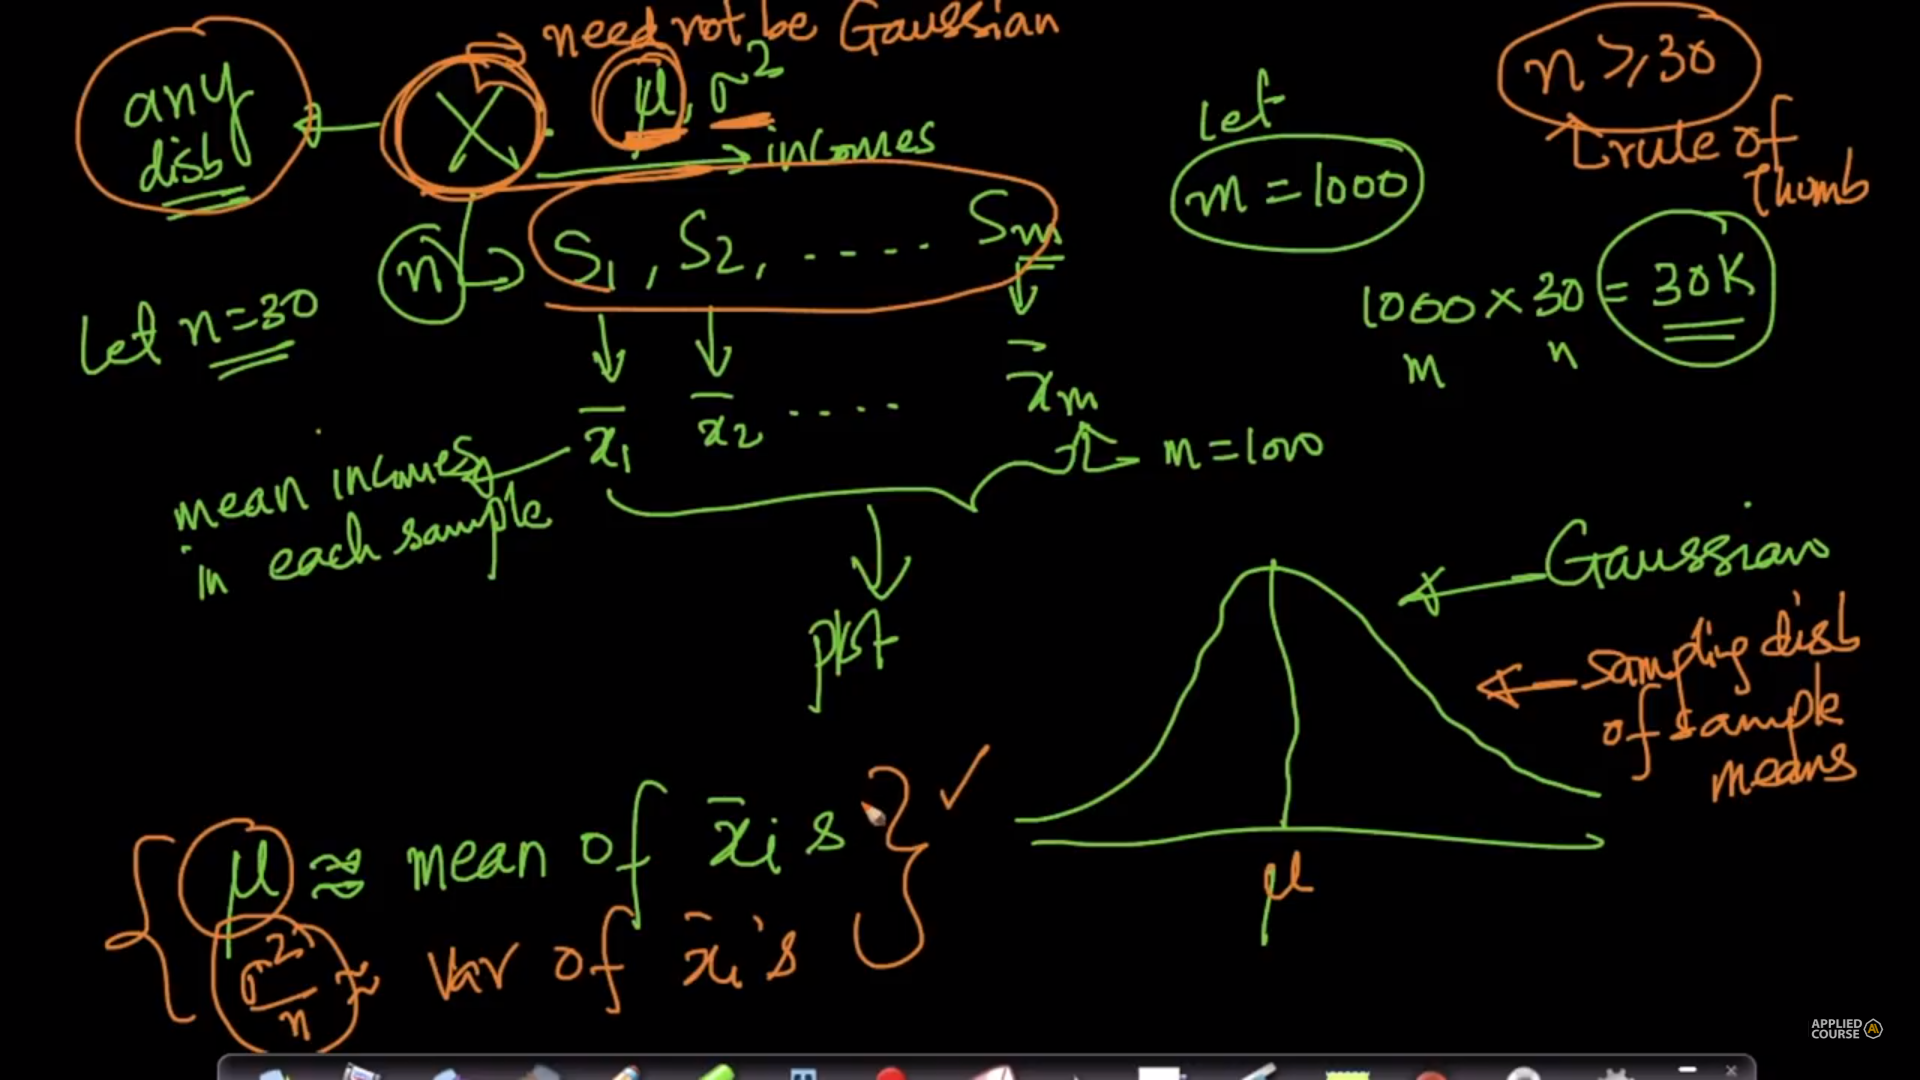 ⇒ need not be Gaussian
any
disb
X . μ, σ²
→ incomes
Let
m = 1000
n ≥ 30
rule of
thumb
n → S₁, S₂, ..... Sₘ
Let n=30
1000 × 30 = 30K
m n
x̄₁ x̄₂ .... x̄ₘ
m = 1000
mean incomes
in each sample
plot
Gaussian
sampling disb
of sample
means
μ
μ ≈ mean of x̄ᵢ s
σ²/n ≈ var of x̄ᵢ's
APPLIED
COURSE